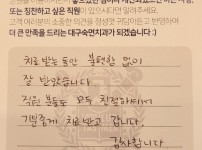 또는 칭찬하고 싶은 직원이 있으시면 알려주세요.
고객 여러분의 소중한 의견을 귀담아듣고 반영하여
더 큰 만족을 드리는 대구숙면치과가 되겠습니다 :)
치료 받는 동안 불편함 없이
잘 받았습니다
직원 분들도 모두 친절하셔서
기분좋게 치료받고 갑니다
감사합니다